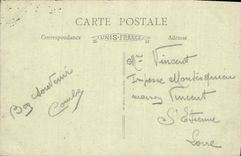 CARTE POSTALE
Correspondance
UNIS-FRANCE
Adresse
Mr Vincent
Impasse Montesquieu
maison Vincent
St Etienne
Loire
Bon Souvenir
Combe